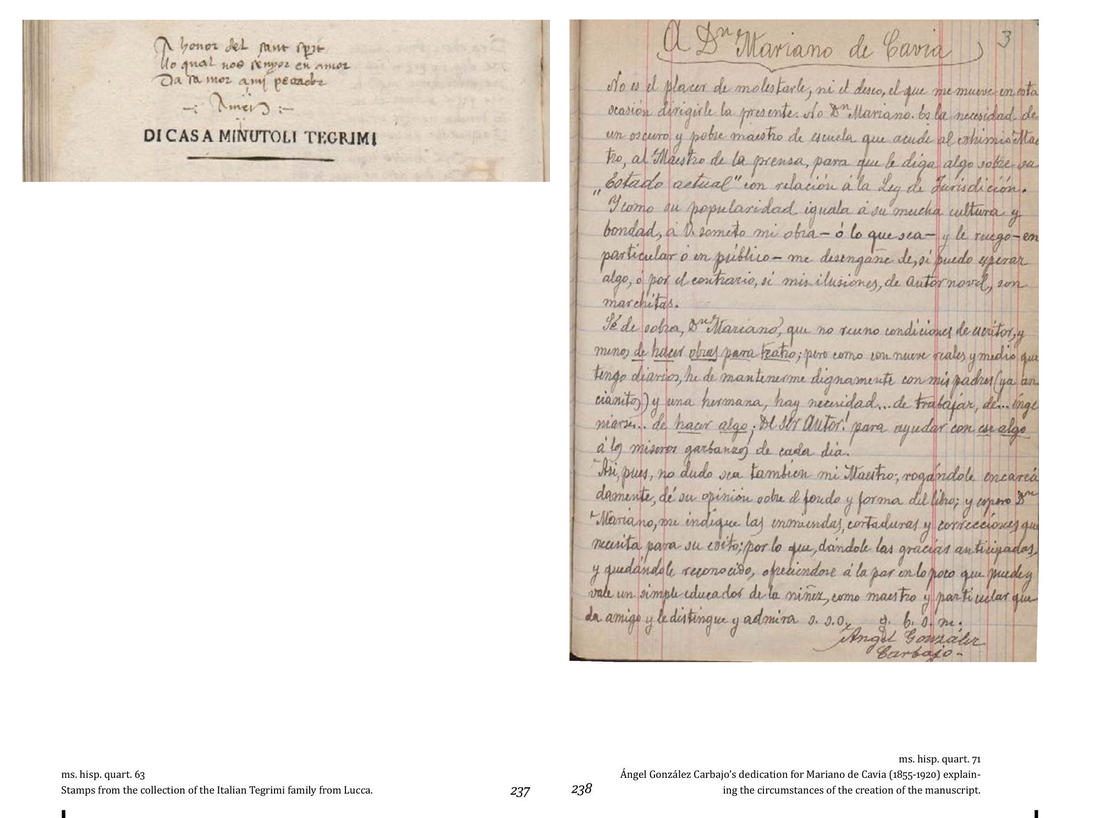 A honor del sant spit
Lo qual nos senyor en amor
Da sa mor a mi pecador
—: Amen :—
DI CASA MINUTOLI TEGRIMI
ms. hisp. quart. 63
Stamps from the collection of the Italian Tegrimi family from Lucca.
237
A Dn Mariano de Cavia
3
No es el placer de molestarle, ni el deseo, el que me mueve en esta
ocasión dirigirle la presente. No Dn Mariano. Es la necesidad de
un oscuro y pobre maestro de escuela que acude al eximio Maes
tro, al Maestro de la prensa, para que le diga algo sobre su
„Estado actual" con relación á la Ley de Jurisdicion.
Y como su popularidad iguala á su mucha cultura y
bondad, á V. someto mi obra — ó lo que sea — y le ruego — en
particular ó en público — me desengañe de, si puedo esperar
algo, ó por el contrario, si mis ilusiones, de Autor novel, son
marchitas.
Sé de sobra, Dn Mariano, que no reuno condiciones de escritor, y
menos de hacer obras para teatro; pero como con nueve reales y medio que
tengo diarios, he de mantenerme dignamente con mis padres (ya an
cianitos) y una hermana, hay necesidad... de trabajar, de... inge
niarse... de hacer algo; De ser Autor! para ayudar con ese algo
á los miseros garbanzos de cada día.
Así, pues, no dudo sea tambien mi Maestro, rogándole encareci
damente, dé su opinión sobre el fondo y forma del libro; y espero Dn
Mariano, me indique las enmiendas, cortaduras y correcciones que
necesita para su exito; por lo que, dándole las gracias anticipadas,
y quedándole reconocido, ofreciendose á la par en lo poco que puede y
vale un simple educador de la niñez, como maestro y particular que
da amigo y le distingue y admira s. s. s. q. b. s. m.
Ángel González
Carbajo-
ms. hisp. quart. 71
Ángel González Carbajo's dedication for Mariano de Cavia (1855-1920) explain-
ing the circumstances of the creation of the manuscript.
238